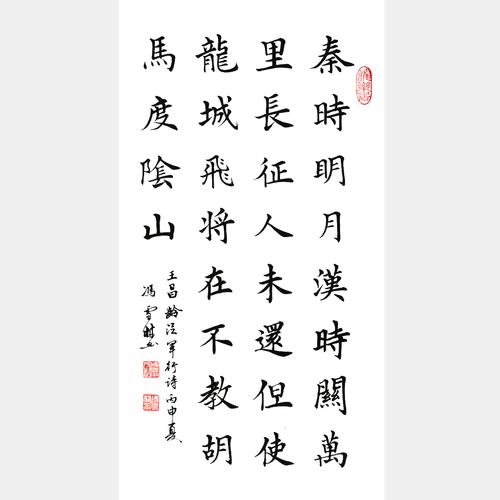 秦時明月漢時關萬
里長征人未還但使
龍城飛将在不教胡
馬度陰山
王昌齡從軍行詩丙申真
馮雪